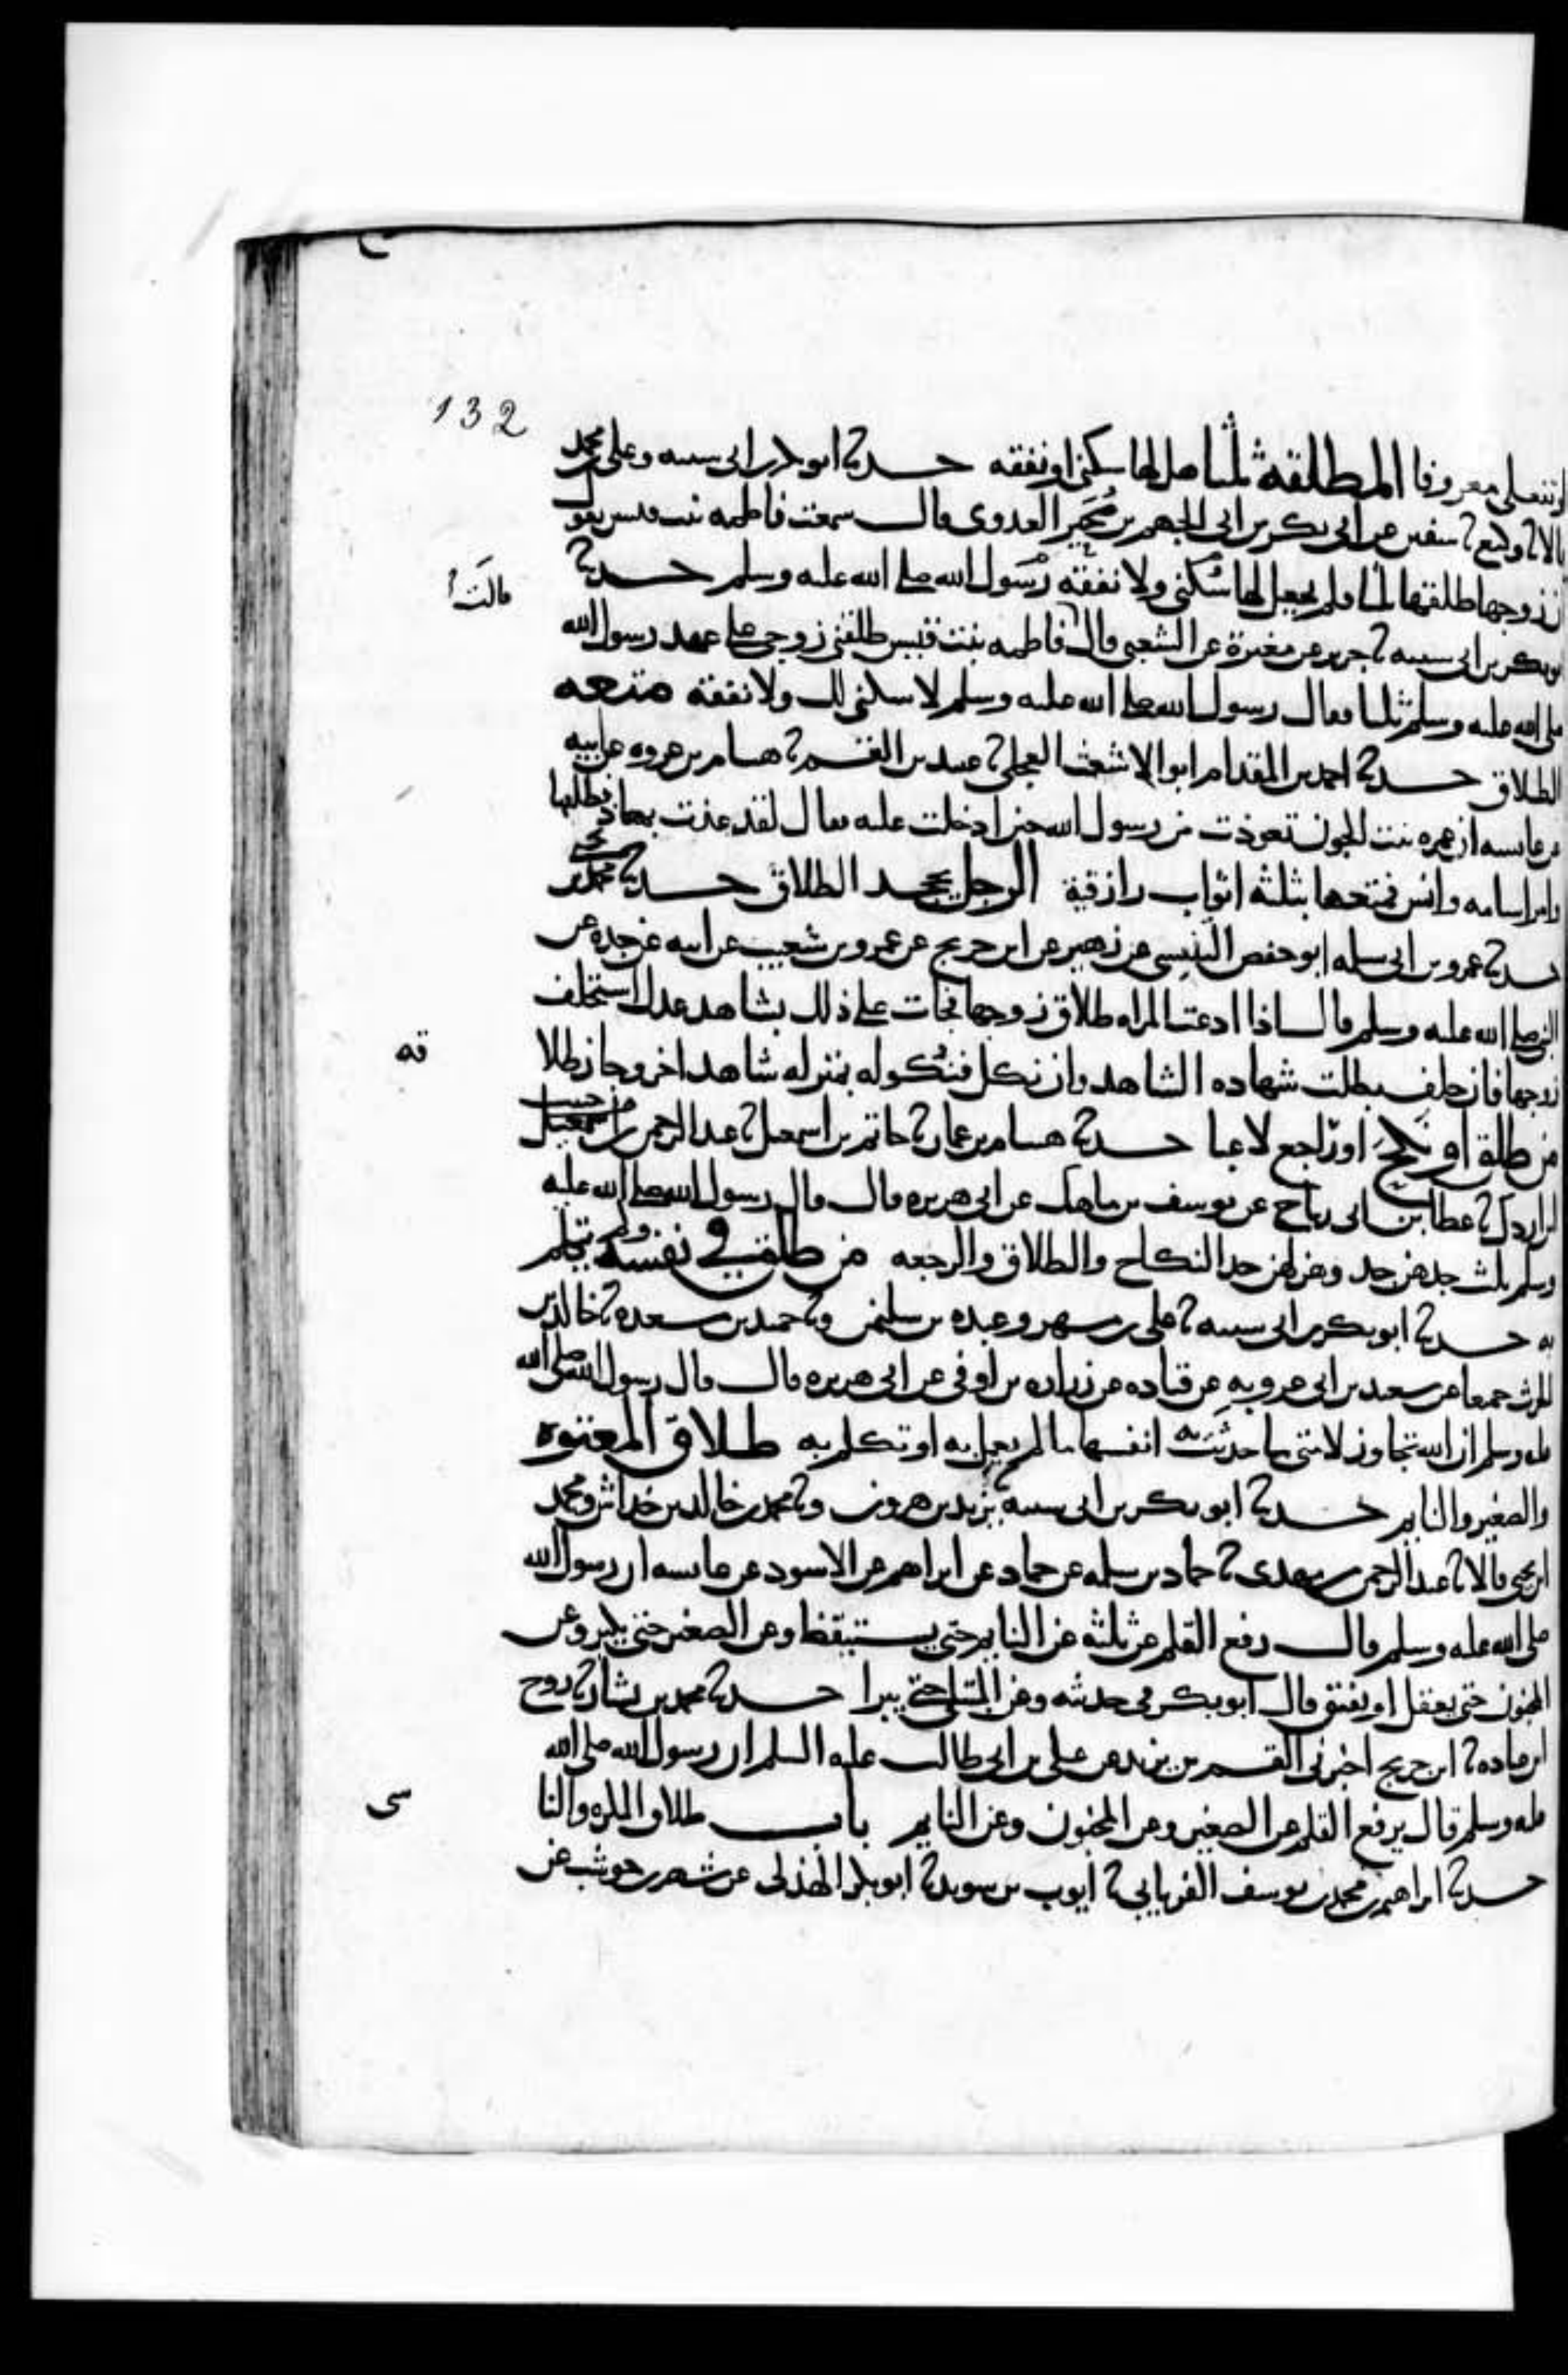 132
او تفعلي معروفا المطلقة ثلثا هل لها سكنى او نفقة حدثنا ابو بكر بن ابى سيبه وعلى بن محمد
قالا ثنا وكيع ثنا سفين عن ابى بكر بن ابى الجهم بن صخير العدوى قال سمعت فاطمه بنت قيس تقول
ان زوجها طلقها ثلثا فلم يجعل لها سكنى ولا نفقة رسول الله صلى الله عليه وسلم حدثنا
ابو بكر بن ابى سيبه ثنا جرير عن مغيرة عن الشعبى قال فاطمه بنت قيس طلقنى زوجى على عهد رسول الله
قالت
صلى الله عليه وسلم ثلثا فقال رسول الله صلى الله عليه وسلم لا سكنى لك ولا نفقة متعه
الطلاق حدثنا احمد بن المقدام ابو الاشعث العجلى ثنا عبيد بن القسم ثنا هسام بن عروه عن ابيه
عن عايسه ان عمره بنت الجون تعوذت من رسول الله حين ادخلت عليه فقال لقد عذت بمعاذ فطلقها
وامر اسامه وانس فمتعها بثلثه اثواب رازقية الرجل يجحد الطلاق حدثنا محمد بن يحيى
حدثنا عمرو بن ابى سلمه ابو حفص التنيسى عن زهير عن ابن جريج عن عمرو بن شعيب عن ابيه عن جده عن
النبى صلى الله عليه وسلم قال اذا ادعت المراه طلاق زوجها فجات على ذلك بشاهد عدل استحلف
زوجها فان حلف بطلت شهاده الشاهد وان نكل فنكوله بمنزله شاهد اخر وجاز طلا
قه
من طلق او نكح او راجع لاعبا حدثنا هسام بن عمار ثنا حاتم بن اسمعيل ثنا عبد الرحمن بن حبيب
ابن اردك ثنا عطا بن ابى رباح عن يوسف بن ماهك عن ابى هريره قال قال رسول الله صلى الله عليه
وسلم ثلث جدهن جد وهزلهن جد النكاح والطلاق والرجعه من طلق في نفسه ولم يتكلم
به حدثنا ابو بكر بن ابى سيبه ثنا على بن مسهر وعبده بن سليمن وثنا حميد بن مسعده ثنا خالد بن
الحرث جميعا عن سعيد بن ابى عروبه عن قتاده عن زراره بن اوفى عن ابى هريره قال قال رسول الله صلى الله
عليه وسلم ان الله تجاوز لامتى ما حدثت به انفسها ما لم تعمل به او تكلم به طلاق المعتوه
والصغير والنايم حدثنا ابو بكر بن ابى سيبه ثنا يزيد بن هرون وثنا محمد بن خالد بن خداش ومحمد
ابن يحيى قالا ثنا عبد الرحمن بن مهدى ثنا حماد بن سلمه عن حماد عن ابراهيم عن الاسود عن عايسه ان رسول الله
صلى الله عليه وسلم قال رفع القلم عن ثلثه عن النايم حتى يستيقظ وعن الصغير حتى يكبر وعن
المجنون حتى يعقل او يفيق قال ابو بكر فى حديثه وعن المبتلى حتى يبرا حدثنا محمد بن بشار ثنا روح
ابن عباده ثنا ابن جريج اخبرنى القسم بن يزيد عن على بن ابى طالب عليه السلم ان رسول الله صلى الله
عليه وسلم قال يرفع القلم عن الصغير وعن المجنون وعن النايم باب طلاق المكره والنا
سى
حدثنا ابراهيم بن محمد بن يوسف الفريابى ثنا ايوب بن سويد ثنا ابو بكر الهذلى عن شهر بن حوشب عن